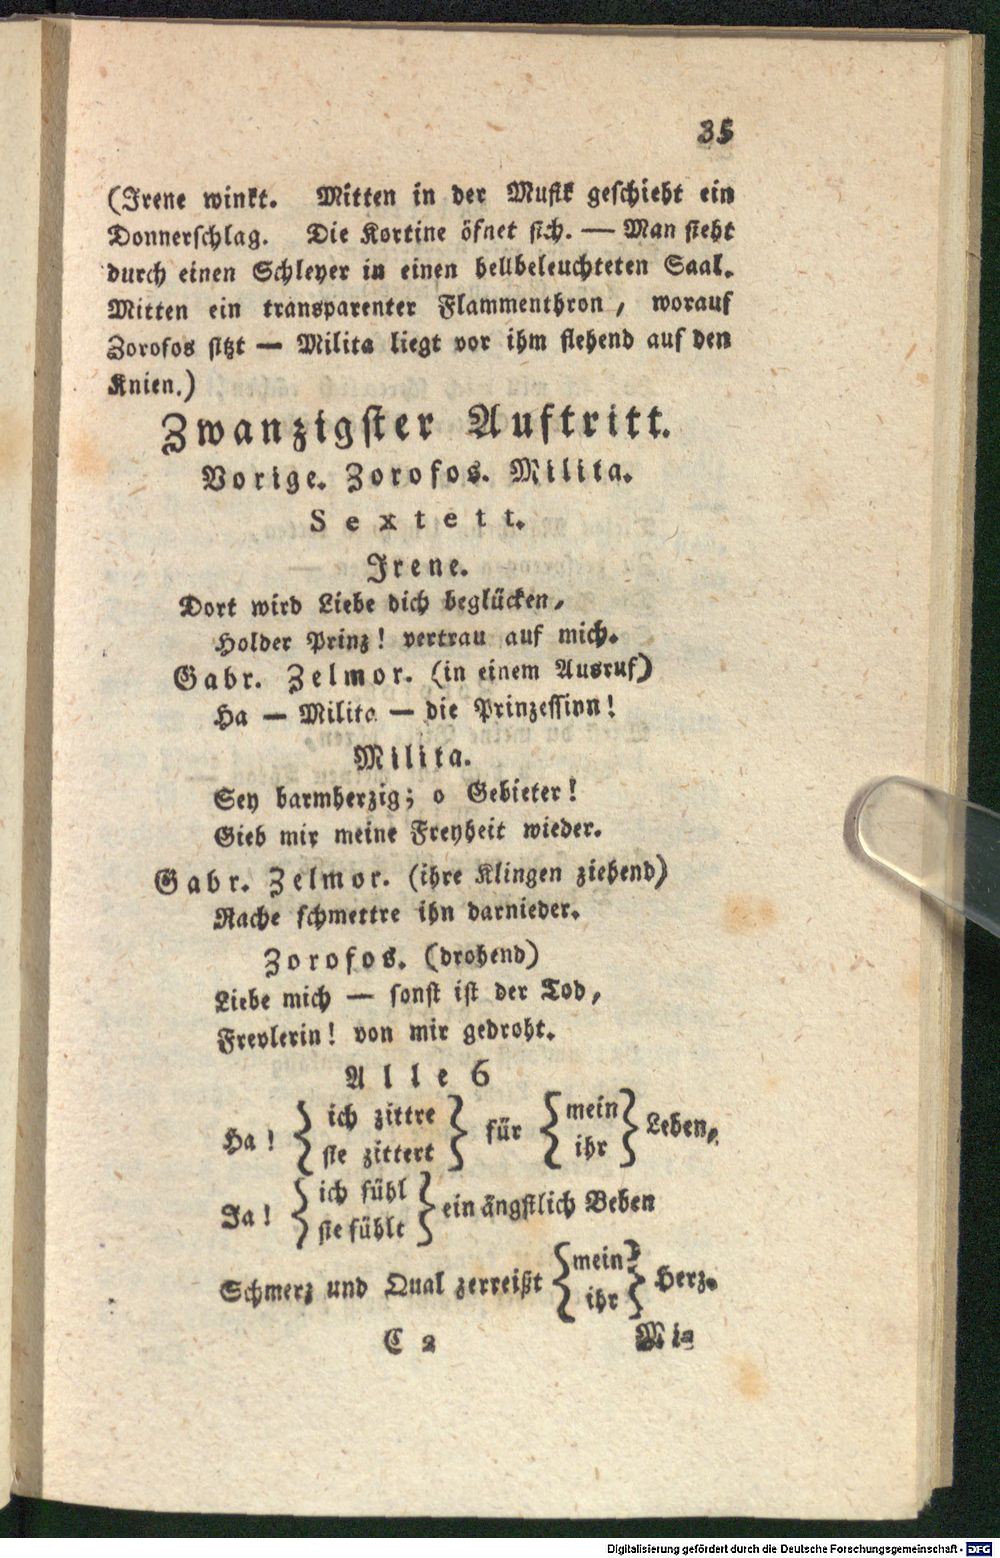 35
(Irene winkt. Mitten in der Musik geschieht ein
Donnerschlag. Die Kortine öfnet sich. — Man sieht
durch einen Schleyer in einen hellbeleuchteten Saal.
Mitten ein transparenter Flammenthron, worauf
Zorofos sitzt — Milita liegt vor ihm flehend auf den
Knien.)
Zwanzigster Auftritt.
Vorige. Zorofos. Milita.
Sextett.
Irene.
Dort wird Liebe dich beglücken,
Holder Prinz! vertrau auf mich.
Gabr. Zelmor. (in einem Ausruf)
Ha — Milita — die Prinzession!
Milita.
Sey barmherzig; o Gebieter!
Gieb mir meine Freyheit wieder.
Gabr. Zelmor. (ihre Klingen ziehend)
Rache schmettre ihn darnieder.
Zorofos. (drohend)
Liebe mich — sonst ist der Tod,
Frevlerin! von mir gedroht.
Alle 6
Ha! { ich zittre / sie zittert } für { mein / ihr } Leben,
Ja! { ich fühl / sie fühlt } ein ängstlich Beben
Schmerz und Qual zerreißt { mein / ihr } Herz.
C 2 Mi=
Digitalisierung gefördert durch die Deutsche Forschungsgemeinschaft - DFG